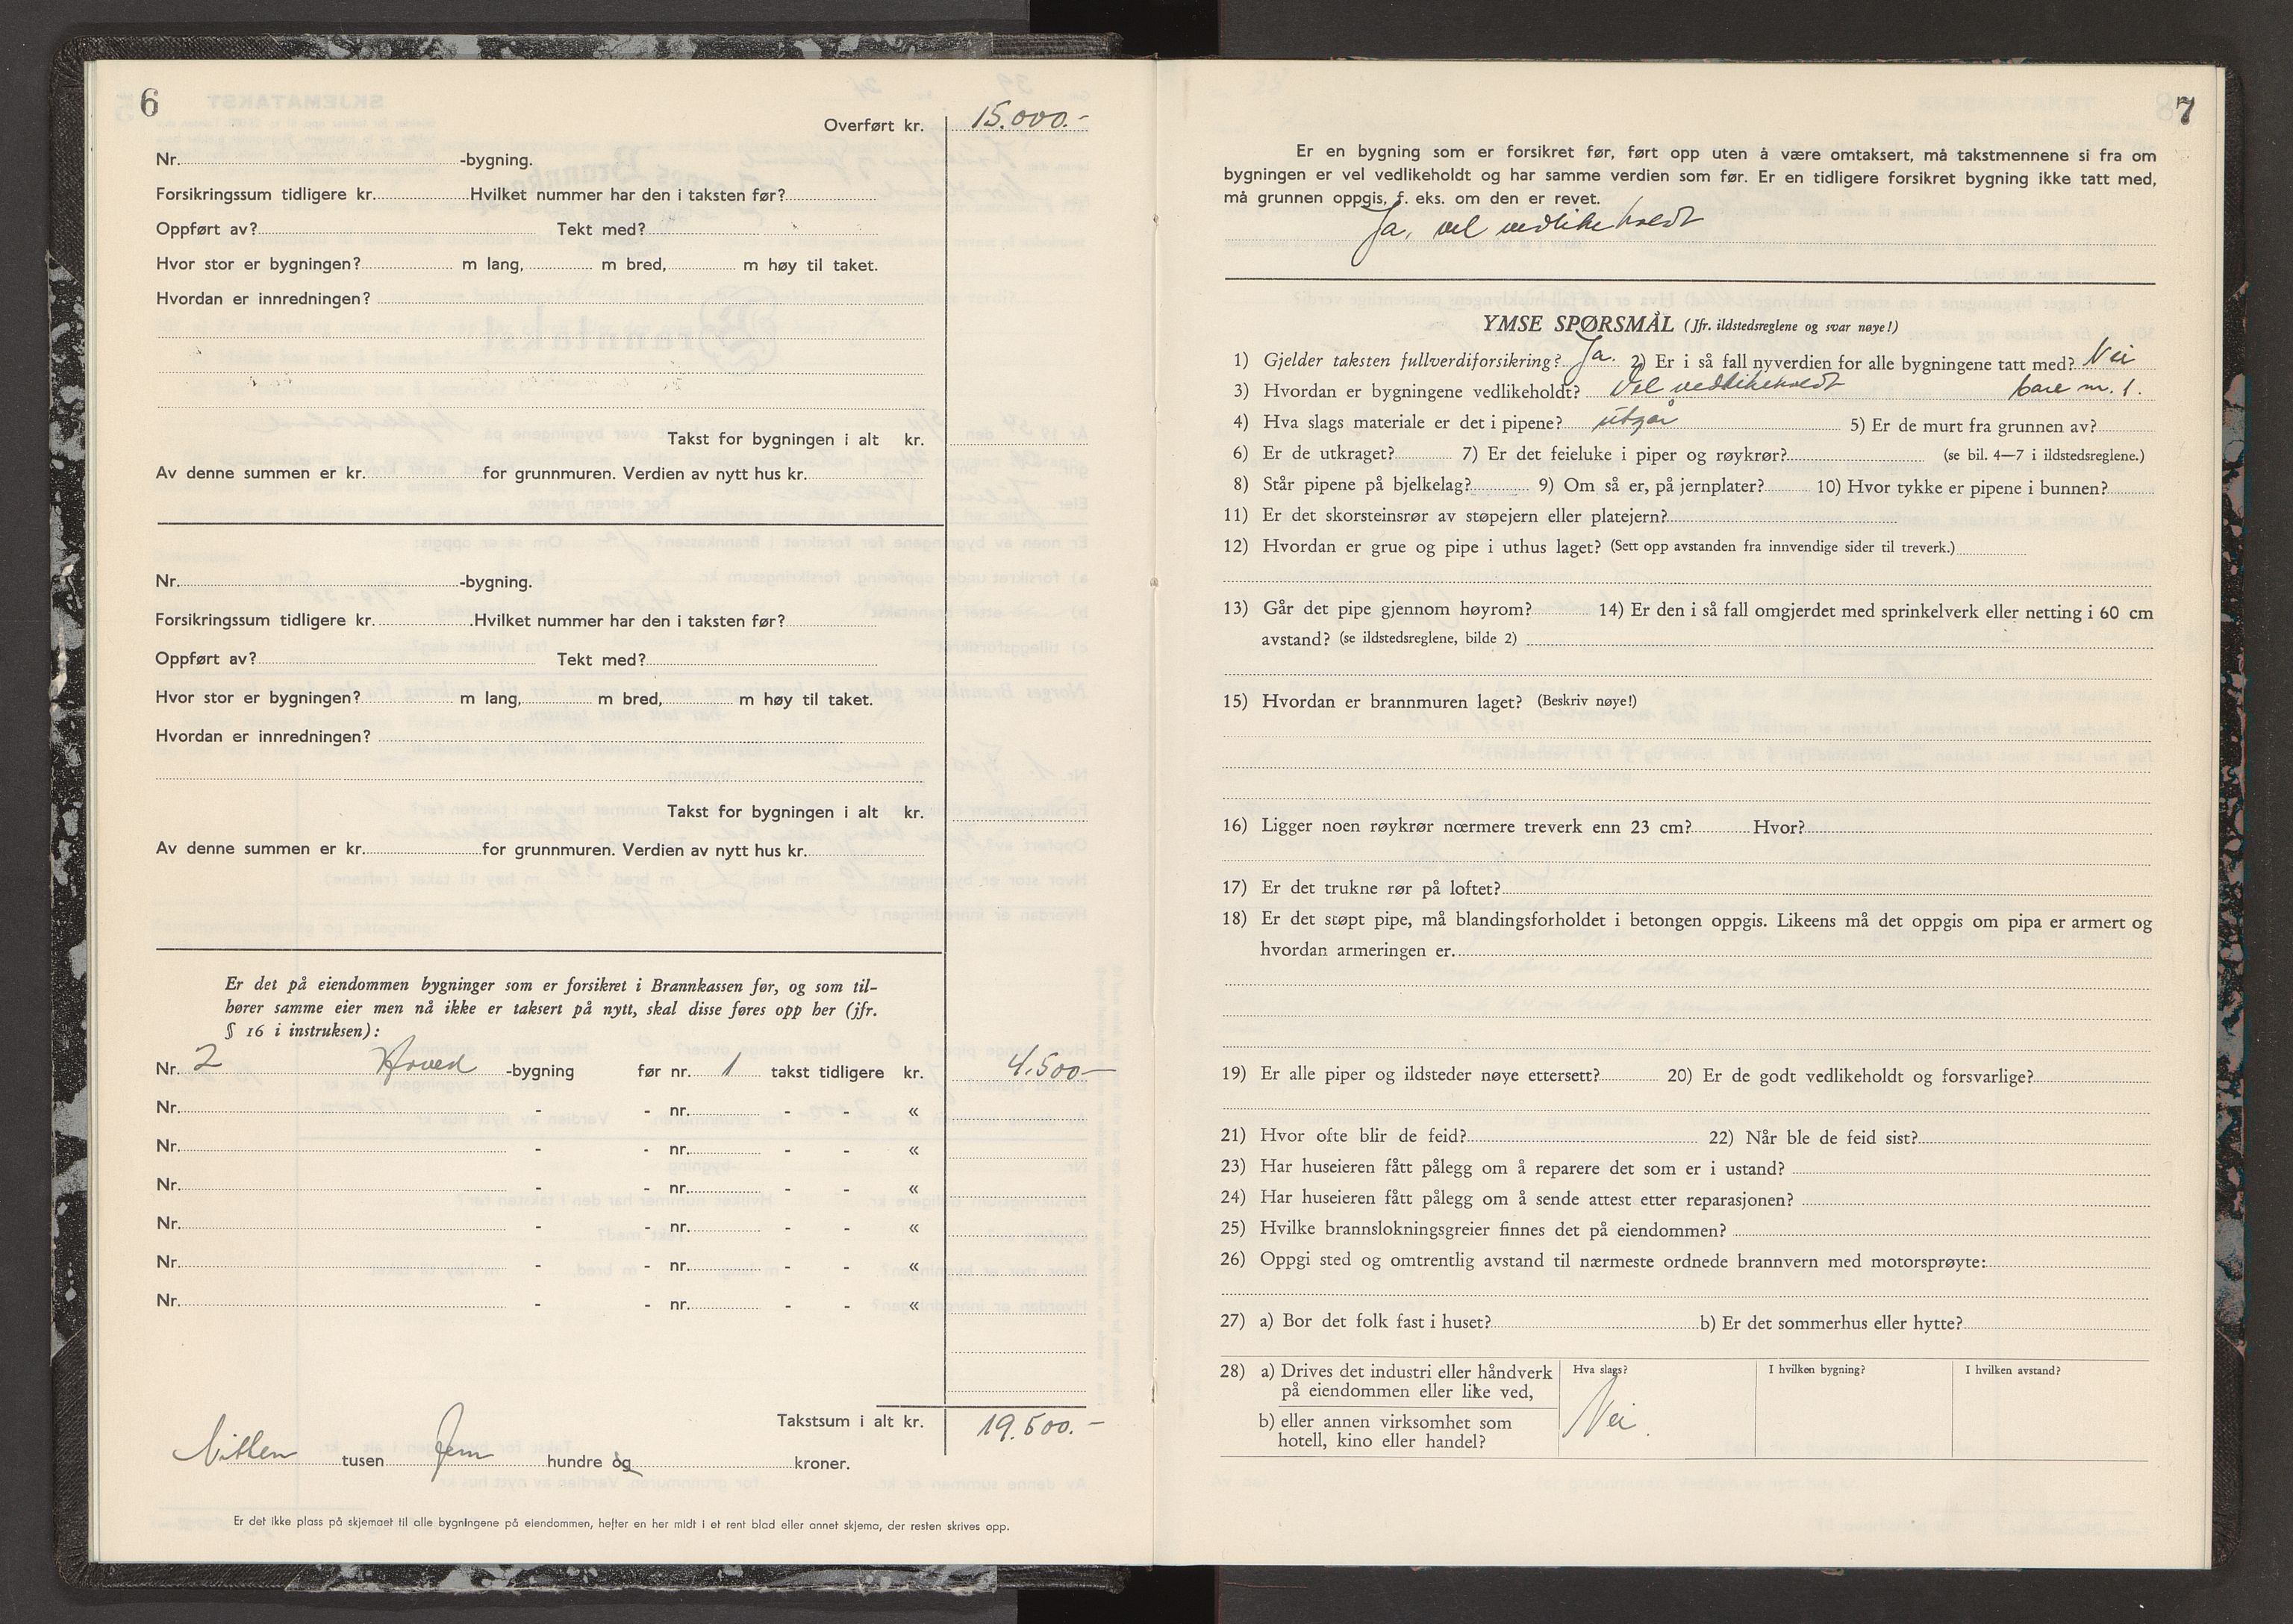 6
Overført kr. 15.000.-
Nr. -bygning.
Forsikringssum tidligere kr. Hvilket nummer har den i taksten før?
Oppført av? Tekt med?
Hvor stor er bygningen? m lang, m bred, m høy til taket.
Hvordan er innredningen?
Takst for bygningen i alt kr.
Av denne summen er kr. for grunnmuren. Verdien av nytt hus kr.
Nr. -bygning.
Forsikringssum tidligere kr. Hvilket nummer har den i taksten før?
Oppført av? Tekt med?
Hvor stor er bygningen? m lang, m bred, m høy til taket.
Hvordan er innredningen?
Takst for bygningen i alt kr.
Av denne summen er kr. for grunnmuren. Verdien av nytt hus kr.
Er det på eiendommen bygninger som er forsikret i Brannkassen før, og som til-
hører samme eier men nå ikke er taksert på nytt, skal disse føres opp her (jfr.
§ 16 i instruksen):
Nr. 2 Hoved -bygning før nr. 1 takst tidligere kr. 4.500—
Nr. - - nr. - - «
Nr. - - nr. - - «
Nr. - - nr. - - «
Nr. - - nr. - - «
Nr. - - nr. - - «
Nr. - - nr. - - «
Takstsum i alt kr. 19.500.-
Nitten tusen fem hundre og kroner.
Er det ikke plass på skjemaet til alle bygningene på eiendommen, hefter en her midt i et rent blad eller annet skjema, der resten skrives opp.
7
Er en bygning som er forsikret før, ført opp uten å være omtaksert, må takstmennene si fra om
bygningen er vel vedlikeholdt og har samme verdien som før. Er en tidligere forsikret bygning ikke tatt med,
må grunnen oppgis, f. eks. om den er revet.
Ja, vel vedlikeholdt
YMSE SPØRSMÅL (Jfr. ildstedsreglene og svar nøye!)
1) Gjelder taksten fullverdiforsikring? Ja. 2) Er i så fall nyverdien for alle bygningene tatt med? Nei
3) Hvordan er bygningene vedlikeholdt? Vel vedlikeholdt bare nr. 1.
4) Hva slags materiale er det i pipene? utgår 5) Er de murt fra grunnen av?
6) Er de utkraget? 7) Er det feieluke i piper og røykrør? (se bil. 4—7 i ildstedsreglene.)
8) Står pipene på bjelkelag? 9) Om så er, på jernplater? 10) Hvor tykke er pipene i bunnen?
11) Er det skorsteinsrør av støpejern eller platejern?
12) Hvordan er grue og pipe i uthus laget? (Sett opp avstanden fra innvendige sider til treverk.)
13) Går det pipe gjennom høyrom? 14) Er den i så fall omgjerdet med sprinkelverk eller netting i 60 cm
avstand? (se ildstedsreglene, bilde 2)
15) Hvordan er brannmuren laget? (Beskriv nøye!)
16) Ligger noen røykrør nœrmere treverk enn 23 cm? Hvor?
17) Er det trukne rør på loftet?
18) Er det støpt pipe, må blandingsforholdet i betongen oppgis. Likeens må det oppgis om pipa er armert og
hvordan armeringen er.
19) Er alle piper og ildsteder nøye ettersett? 20) Er de godt vedlikeholdt og forsvarlige?
21) Hvor ofte blir de feid? 22) Når ble de feid sist?
23) Har huseieren fått pålegg om å reparere det som er i ustand?
24) Har huseieren fått pålegg om å sende attest etter reparasjonen?
25) Hvilke brannslokningsgreier finnes det på eiendommen?
26) Oppgi sted og omtrentlig avstand til nærmeste ordnede brannvern med motorsprøyte:
27) a) Bor det folk fast i huset? b) Er det sommerhus eller hytte?
28) a) Drives det industri eller håndverk Hva slags? I hvilken bygning? I hvilken avstand?
på eiendommen eller like ved,
b) eller annen virksomhet som Nei.
hotell, kino eller handel?